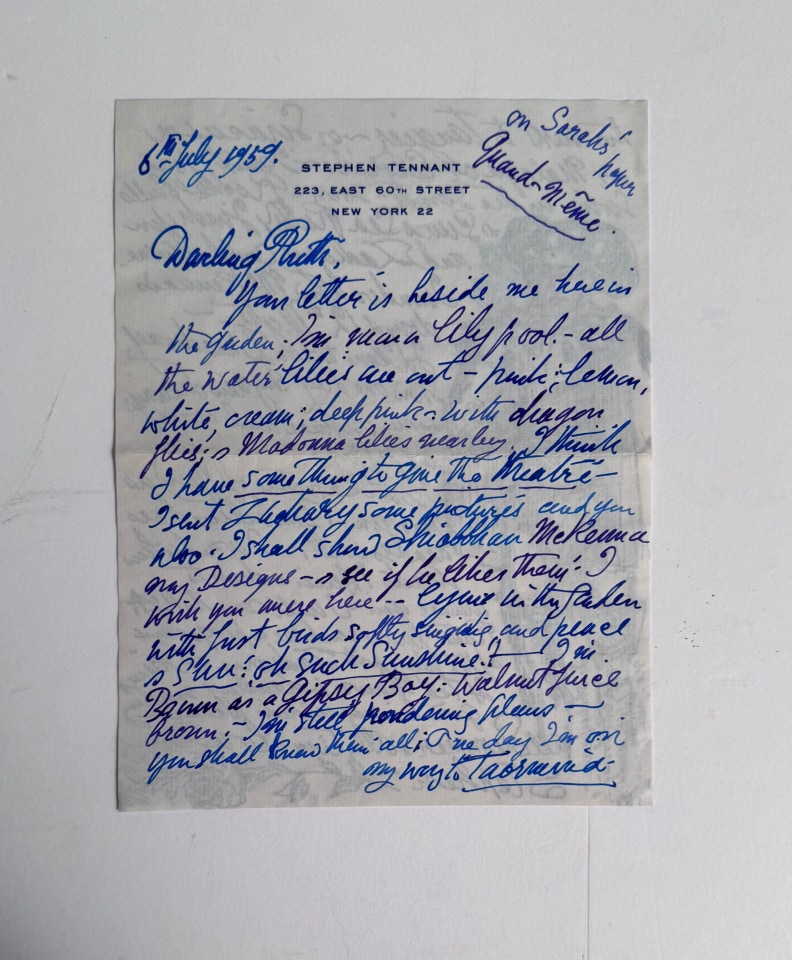 6th July 1959.
on Sarah's
paper
Quand-Même.
STEPHEN TENNANT
223, EAST 60TH STREET
NEW YORK 22
Darling Ruth,
Your letter is beside me here in
the garden; I'm near a lily pool. - all
the water lilies are out - pink; lemon,
white, cream; deep pink - with dragon
flies; & Madonna lilies nearby. I think
I have something to give the Theatre -
I sent Zachary some pictures and you
also. I shall show Shiobhan McKenna
my Designs - & see if he likes them! I
wish you were here -- lying in the garden
with just birds softly singing, and peace
& Sun! oh such Sunshine! — I'm
Brown as a Gipsy Boy: Walnut juice
brown. - I'm still pondering plans -
you shall know them all; One day I'm on
my way to Taormina -